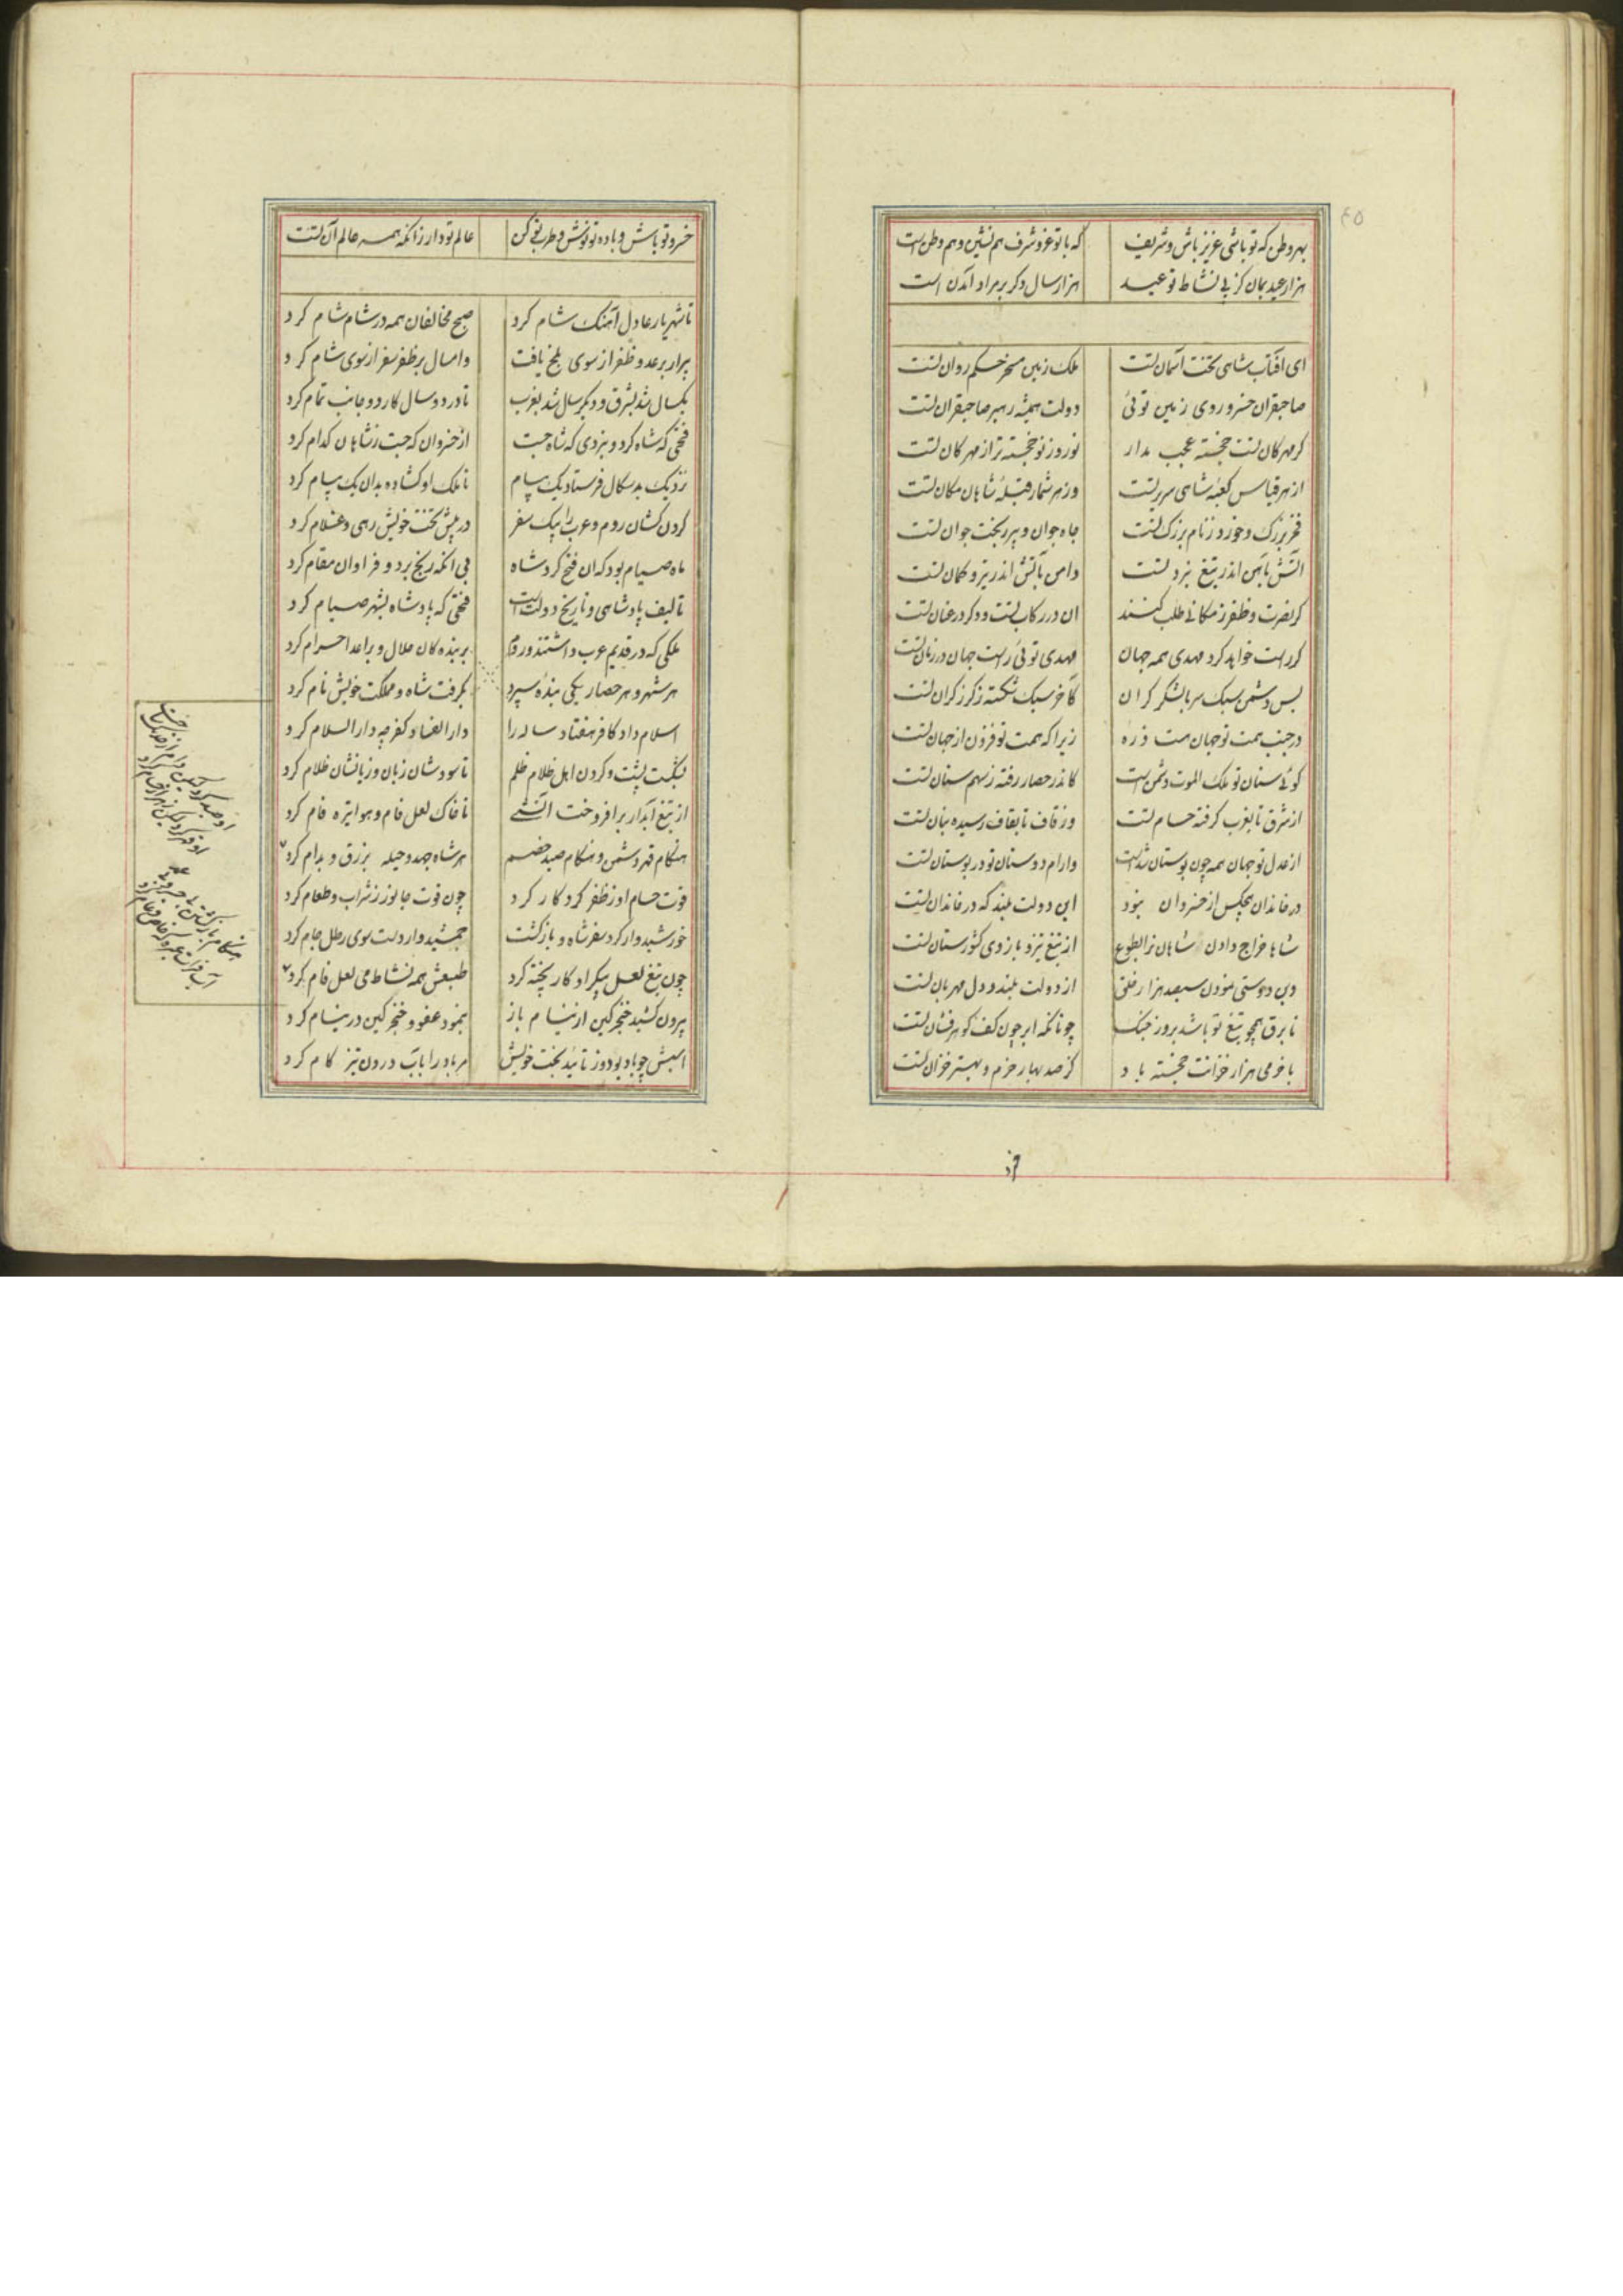 ۴۵
بهر وطن که تو باشی عزیز باش و شریف که با تو عز و شرف هم نشین و هم وطن است
هزار عید بمان کز پی نشاط تو عید هزار سال دکر بر مراد آمدن است
ای افتاب شاهی تخت اسمان تست ملک زمین مسخر حکم روان تست
صاحبقران خسرو روی زمین توئی دولت همیشه رهبر صاحبقران تست
کر مهرکان تست خجسته عجب مدار نوروز تو خجسته تر از مهرکان تست
از هر قیاس کعبه شاهی سریر تست وز هر شمار قبله شاهان مکان تست
فخر بزرک و خورد ز نام بزرک تست جاه جوان و پیر ز بخت جوان تست
اتش باهن اندر تیغ نبرد تست واهن باتش اندر تیر و کمان تست
کر نصرت و ظفر ز مکانی طلب کنند ان در رکاب تست و دکر در عنان تست
کر راست خواهد کرد مهدی همه جهان مهدی توئی راست جهان در زمان تست
بس دشمن سبک سر با لشکر کران کاخر سبک شکسته ز کرز کران تست
در جنب همت تو جهان هست ذره زیرا که همت تو فزون از جهان تست
کوئی سنان تو ملک الموت دشمن است کاندر حصار رفته ز سهم سنان تست
از شرق تا بغرب کرفته حسام تست وز قاف تا بقاف رسیده بنان تست
از عدل تو جهان همه چون بوستان شد است وارام دوستان تو در بوستان تست
در خاندان هیچکس از خسروان نبود این دولت بلند که در خاندان تست
شاها خراج دادن شاهان بر الطوع از تیغ تیز و بازوی کشورستان تست
وین دوستی نمودن سیصد هزار خلق از دولت بلند و دل مهربان تست
تا برق همچو تیغ تو باشد بروز جنک چونانکه ابر چون کف کوهرفشان تست
با خرمی هزار خزانت خجسته باد کز صد بهار خرم و بهتر خزان تست
خسرو تو باش و باده تو نوش و طرب تو کن عالم تو دار زانکه همه عالم آن تست
تا شهریار عادل آهنک شام کرد صبح مخالفان همه در شام شام کرد
پیرار بر عدو ظفر از سوی بلخ یافت وامسال بر ظفر سفر از سوی شام کرد
یکسال شد بشرق و دکر سال شد بغرب تا در دو سال کار دو جانب تمام کرد
فتحی که شاه کرد و نبردی که شاه جست از خسروان که جست ز شاهان کدام کرد
نزدیک بدسکال فرستاد یک پیام تا ملک او کشاده بدان یک پیام کرد
کردن کشان روم و عرب را بیک سفر در پیش تخت خویش رهی و غلام کرد
ماه صیام بود که ان فتح کرد شاه بی انکه رنج برد و فراوان مقام کرد
تالیف پادشاهی و تاریخ دولت است فتحی که پادشاه بشهر صیام کرد
ملکی که در قدیم عرب داشتند و روم بر بنده کان حلال و بر اعدا حرام کرد
هر شهر و هر حصار بیکی بنده سپرد بکرفت شاه و مملکت خویش نام کرد
اسلام داد کافر هفتاد ساله را دار الفناء کفر چو دار السلام کرد
بشکست پشت و کردن اهل ظلام ظلم تا سودشان زیان و زیانشان ظلام کرد
از تیغ آبدار برافروخت اتشی تا خاک لعل فام و هوا تیره فام کرد
هنکام قهر دشمن و هنکام صید خصم هر شاه جهد و حیله بزرق و بدام کرد
قوت حسام او ز ظفر کرد کار کرد چون قوت جانور ز شراب و طعام کرد
خورشید وار کرد سفر شاه و بازکشت جمشید وار دست سوی رطل جام کرد
چون تیغ لعل پیکر او کار پخته کرد طبعش همه نشاط می لعل فام کرد
بیرون کشید خنجر کین از نیام باز بنمود عفو و خنجر کین در نیام کرد
اسبش چو باد بود و ز تائید بخت خویش مر باد را باب درون تیز کام کرد
او صید کرد لیکن دام از
او قهر کرد لیکن
هنکام بازکشتن
آب فرات